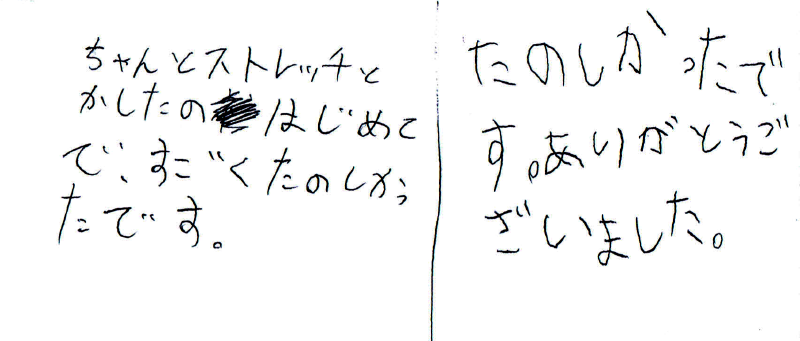 ちゃんとストレッチと
かしたのはじめて
で、すごくたのしかっ
たです。
たのしかったで
す。ありがとうご
ざいました。